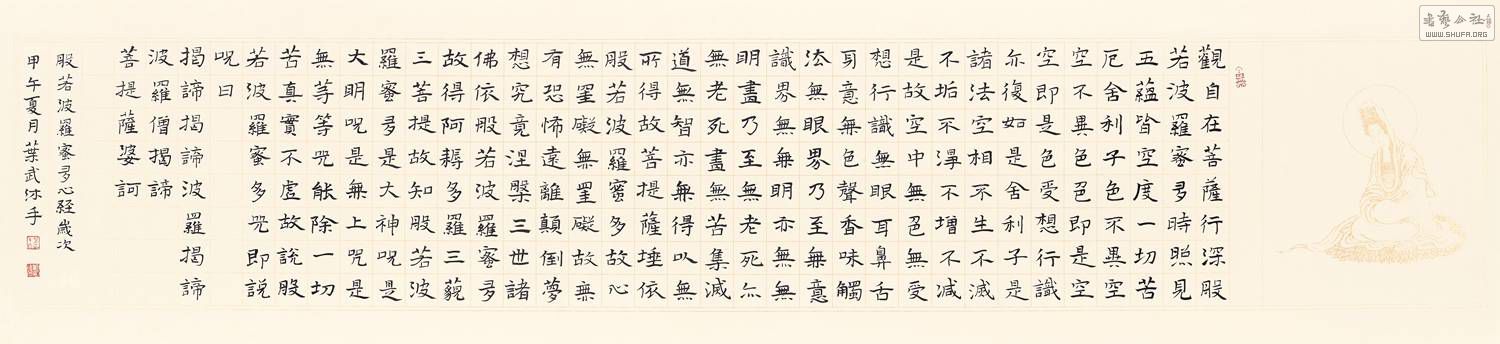 觀自在菩薩行深般
若波羅蜜多時照見
五蘊皆空度一切苦
厄舍利子色不異空
空不異色色即是空
空即是色受想行識
亦復如是舍利子是
諸法空相不生不滅
不垢不淨不增不減
是故空中無色無受
想行識無眼耳鼻舌
身意無色聲香味觸
法無眼界乃至無意
識界無無明亦無無
明盡乃至無老死亦
無老死盡無苦集滅
道無智亦無得以無
所得故菩提薩埵依
般若波羅蜜多故心
無罣礙無罣礙故無
有恐怖遠離顛倒夢
想究竟涅槃三世諸
佛依般若波羅蜜多
故得阿耨多羅三藐
三菩提故知般若波
羅蜜多是大神咒是
大明咒是無上咒是
無等等咒能除一切
苦真實不虛故說般
若波羅蜜多咒即說
咒曰
揭諦揭諦波羅揭諦
波羅僧揭諦
菩提薩婆訶
般若波羅蜜多心經歲次
甲午夏月葉武沐手
書藝公社
WWW.SHUFA.ORG